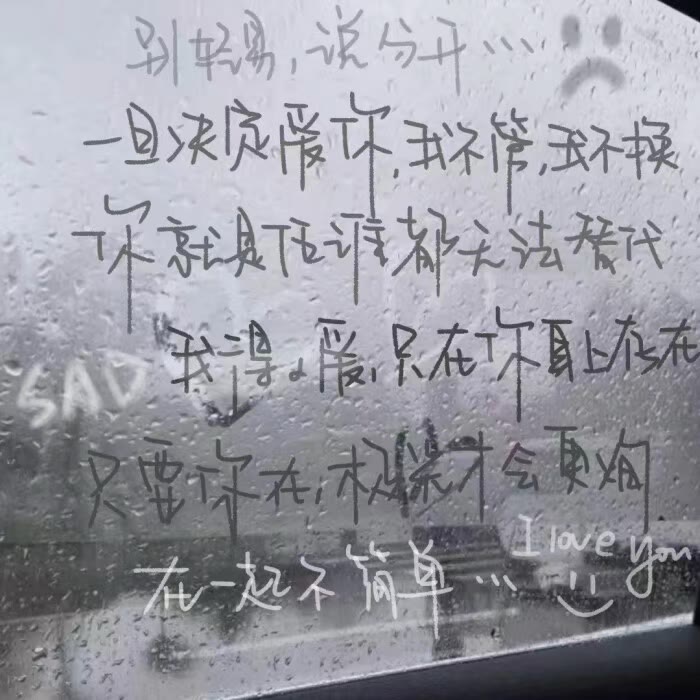 别轻易,说分开...
一旦决定爱你,我不管,我不换
你就是任谁都无法替代
SAD
我得。爱,只在你身上存在
只要你在,
才会更
I love you
在一起不简单...